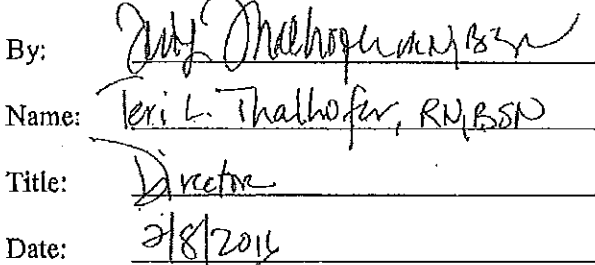 By: Thalhofer RN, BSN
Name: Teri L. Thalhofer, RN, BSN
Title: Director
Date: 2/8/2016